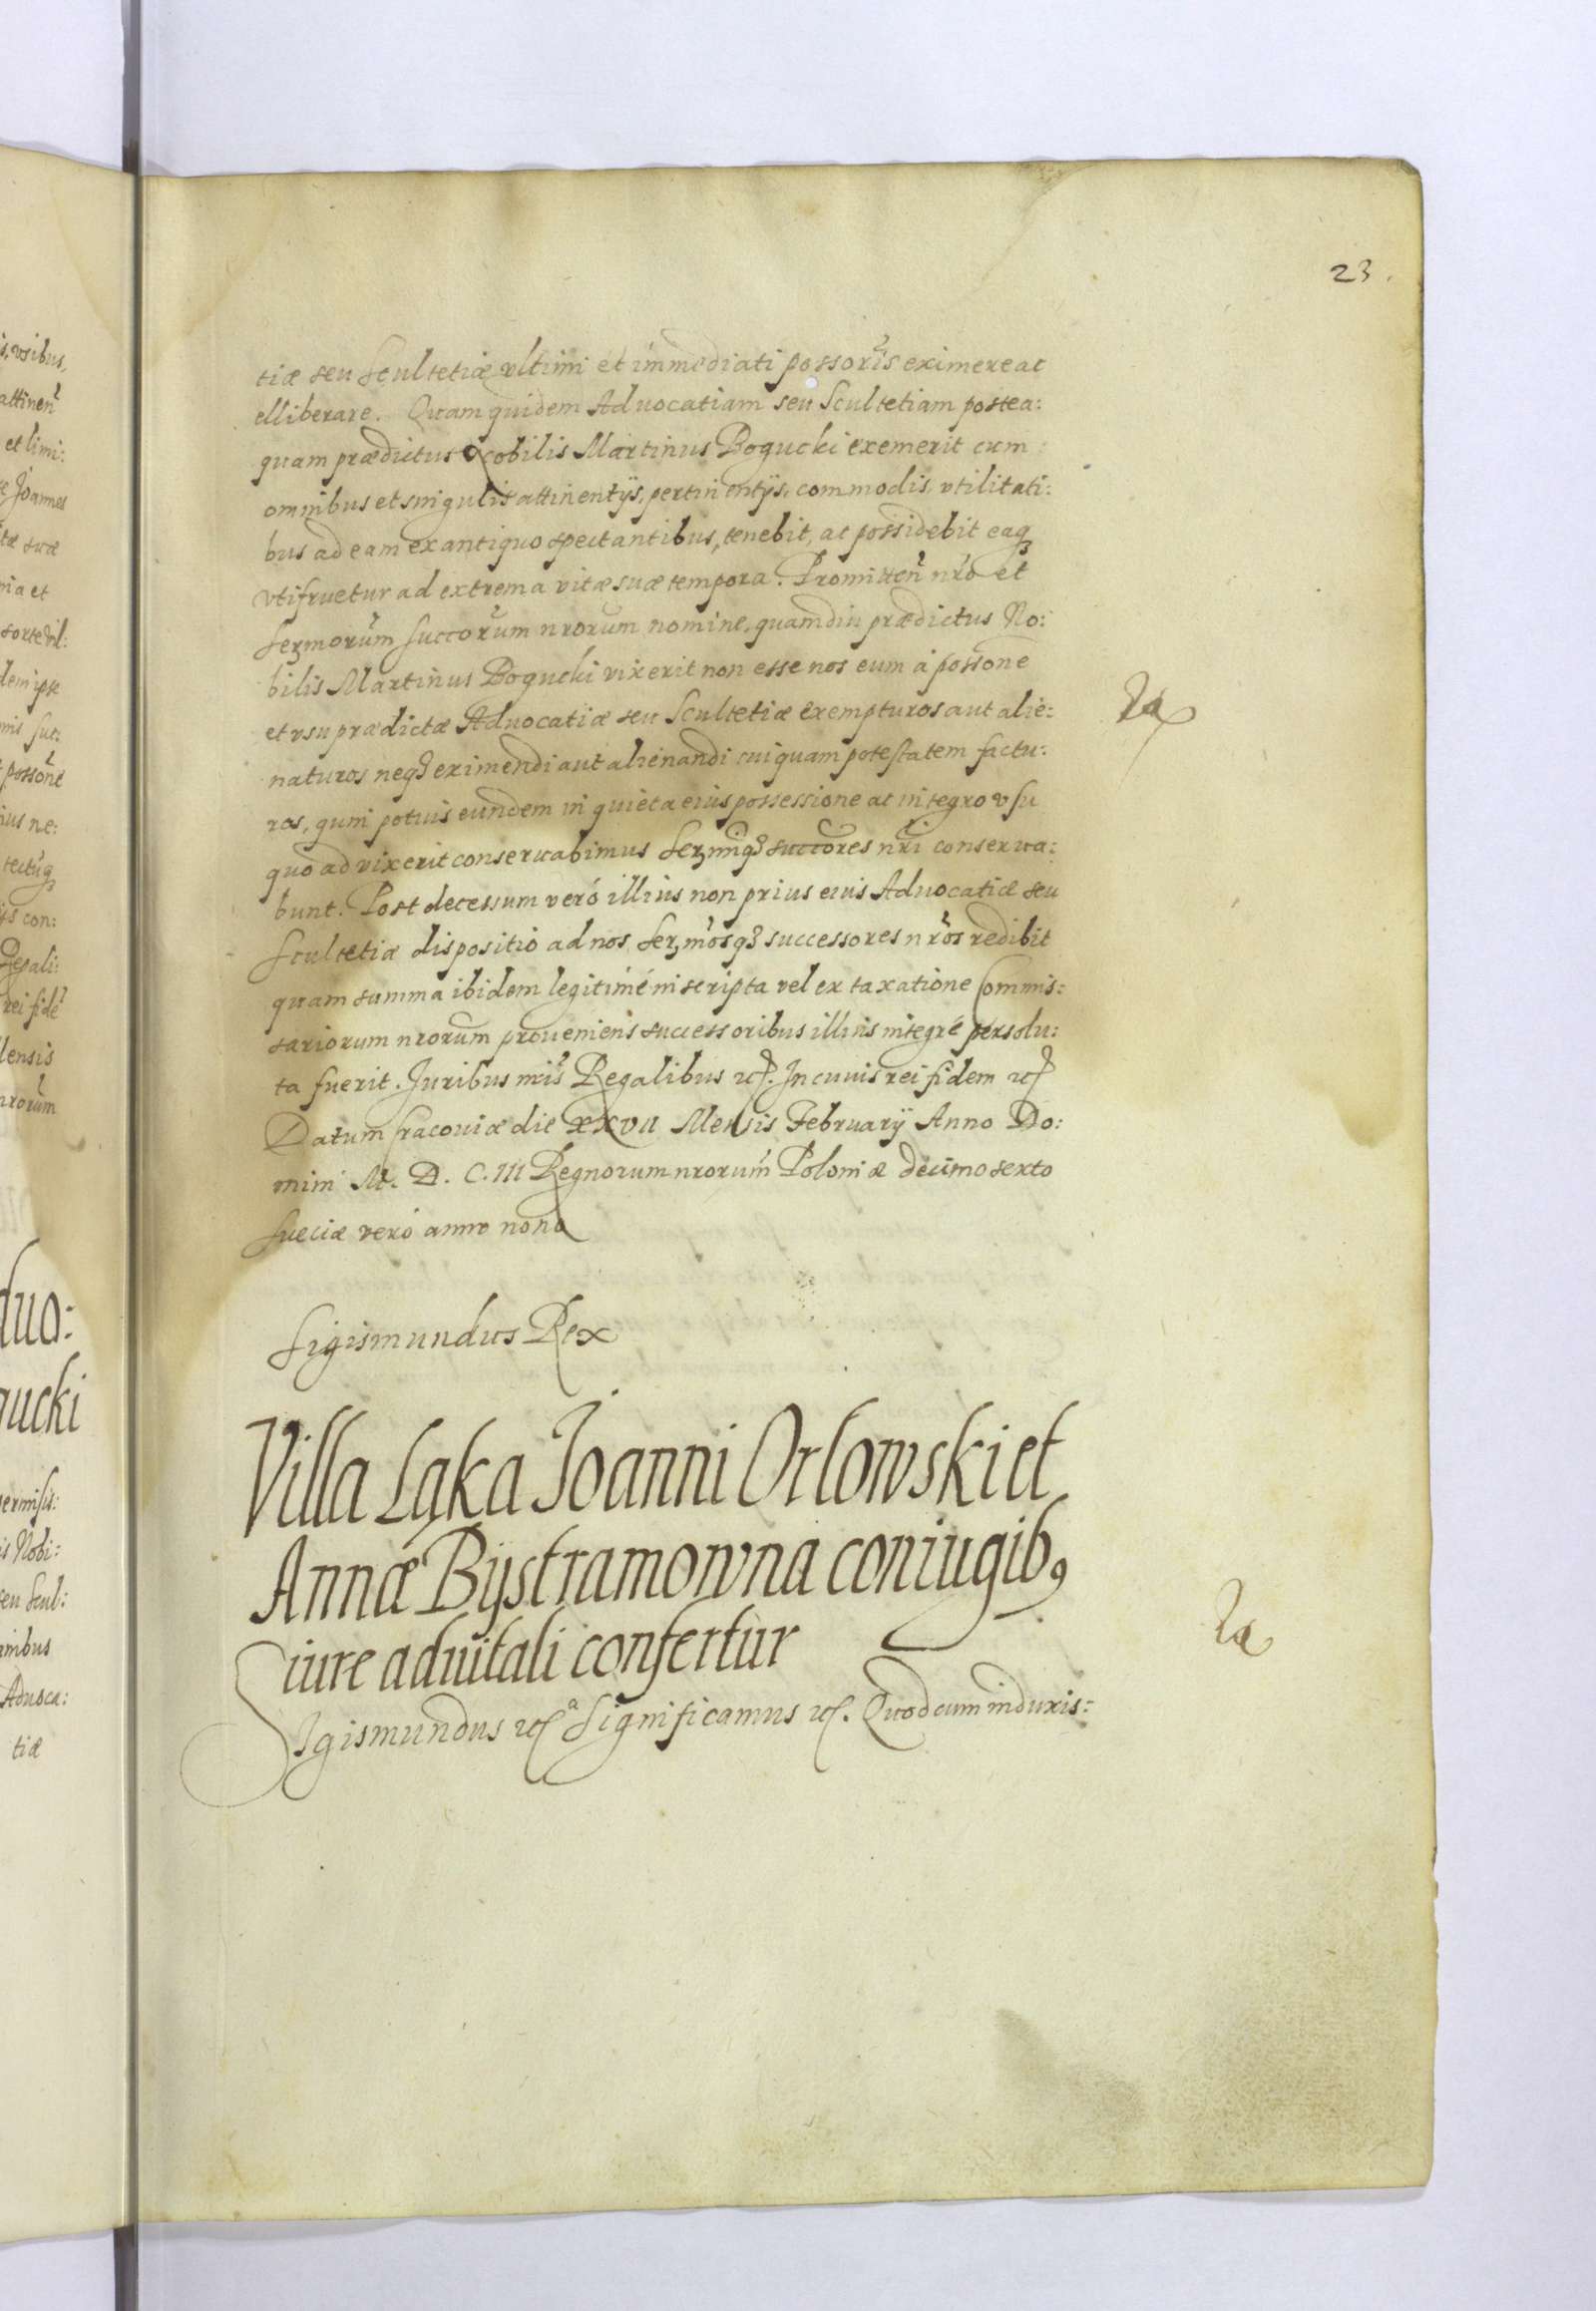 23.
tiæ seu Scultetiæ vltimi et immediati possoris eximere ac
elliberare. Quam quidem Aduocatiam seu Scultetiam postea:
quam prædictus Nobilis Martinus Bogucki exemerit cum
omnibus et singulis attinentijs, pertinentijs, commodis, vtilitati:
bus ad eam ex antiquo spectantibus, tenebit, ac possidebit eaq3
vtifruetur ad extrema vitæ suæ tempora. Promitten nro et
Ser3morum succorum nrorum nomine, quamdiu prædictus No:
bilis Martinus Bogucki vixerit non esse nos eum à possone
et vsu prædictæ Aduocatiæ seu Scultetiæ exempturos aut alie:
naturos neq3 eximendi aut alienandi cuiquam potestatem factu:
ros, quin potius eundem in quieta eius possessione ac integro vsu
quo ad vixerit conseruabimus Ser3miq3 succores nri conserua:
bunt. Post decessum veró illius non prius eius Aduocatiæ seu
Scultetiæ dispositio ad nos Ser3mosq3 successores nros redibit
quam summa ibidem legitimé inscripta vel ex taxatione Commis:
sariorum nrorum proueniens successoribus illius integré persolu:
ta fuerit. Juribus nris Regalibus etc. In cuius rei fidem etc
Datum Cracouiæ die XXVII Mensis February Anno Do:
mini M. D. C. III Regnorum nrorum Poloniæ decimo sexto
Sueciæ veró anno nono
Sigismundus Rex
Villa Łąka Joanni Orlowski et
Annæ Bystramowna coniugib9
iure aduitali confertur
Sigismundus etc Significamus etc. Quod cum induxis:
s, vsibus,
attinen
et limi:
Joannes
tæ suæ
nia et
sorte vil:
dem ipse
mis suc:
possone
ius ne:
ijs con:
Regali:
rei fide
lensis
nrorum
duo:
gucki
permisis:
is Nobi:
seu Scul:
mnibus
Aduoca:
tiæ